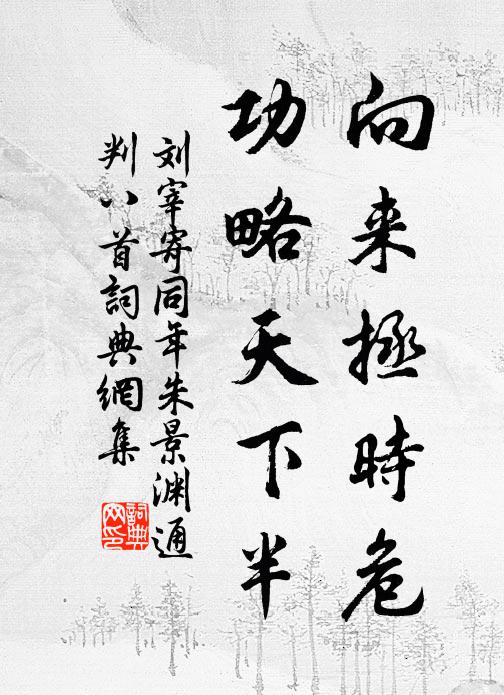 向来拯時危
功略天下半
刘宰寄同年朱景渊通
判八首詞典網集
詞典
网印